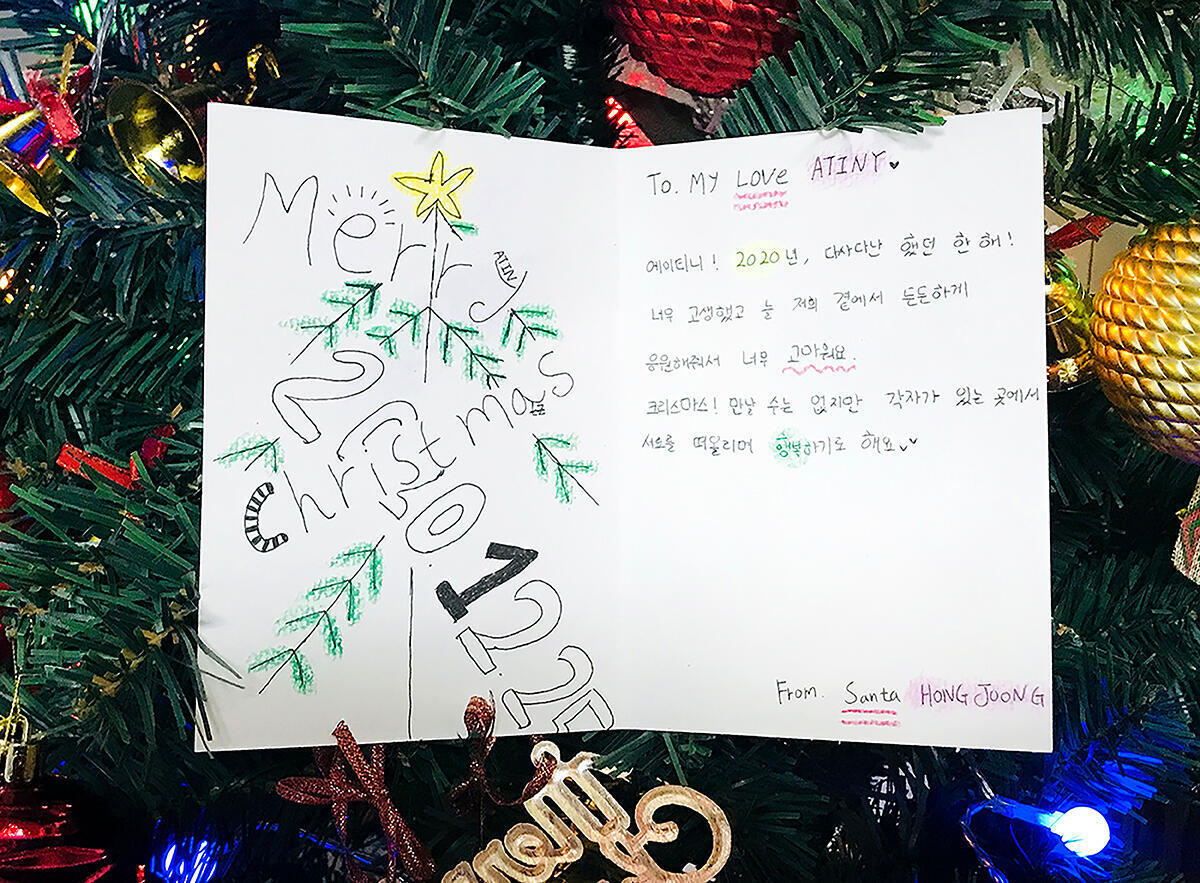 Merry
ATINY
Christmas
2020
1225
To. MY LOVE ATINY
에이티니! 2020년, 다사다난 했던 한 해!
너무 고생했고 늘 저희 곁에서 든든하게
응원해줘서 너무 고마워요.
크리스마스! 만날 수는 없지만 각자가 있는 곳에서
서로를 떠올리며 행복하기로 해요
From. Santa HONGJOONG
Merry